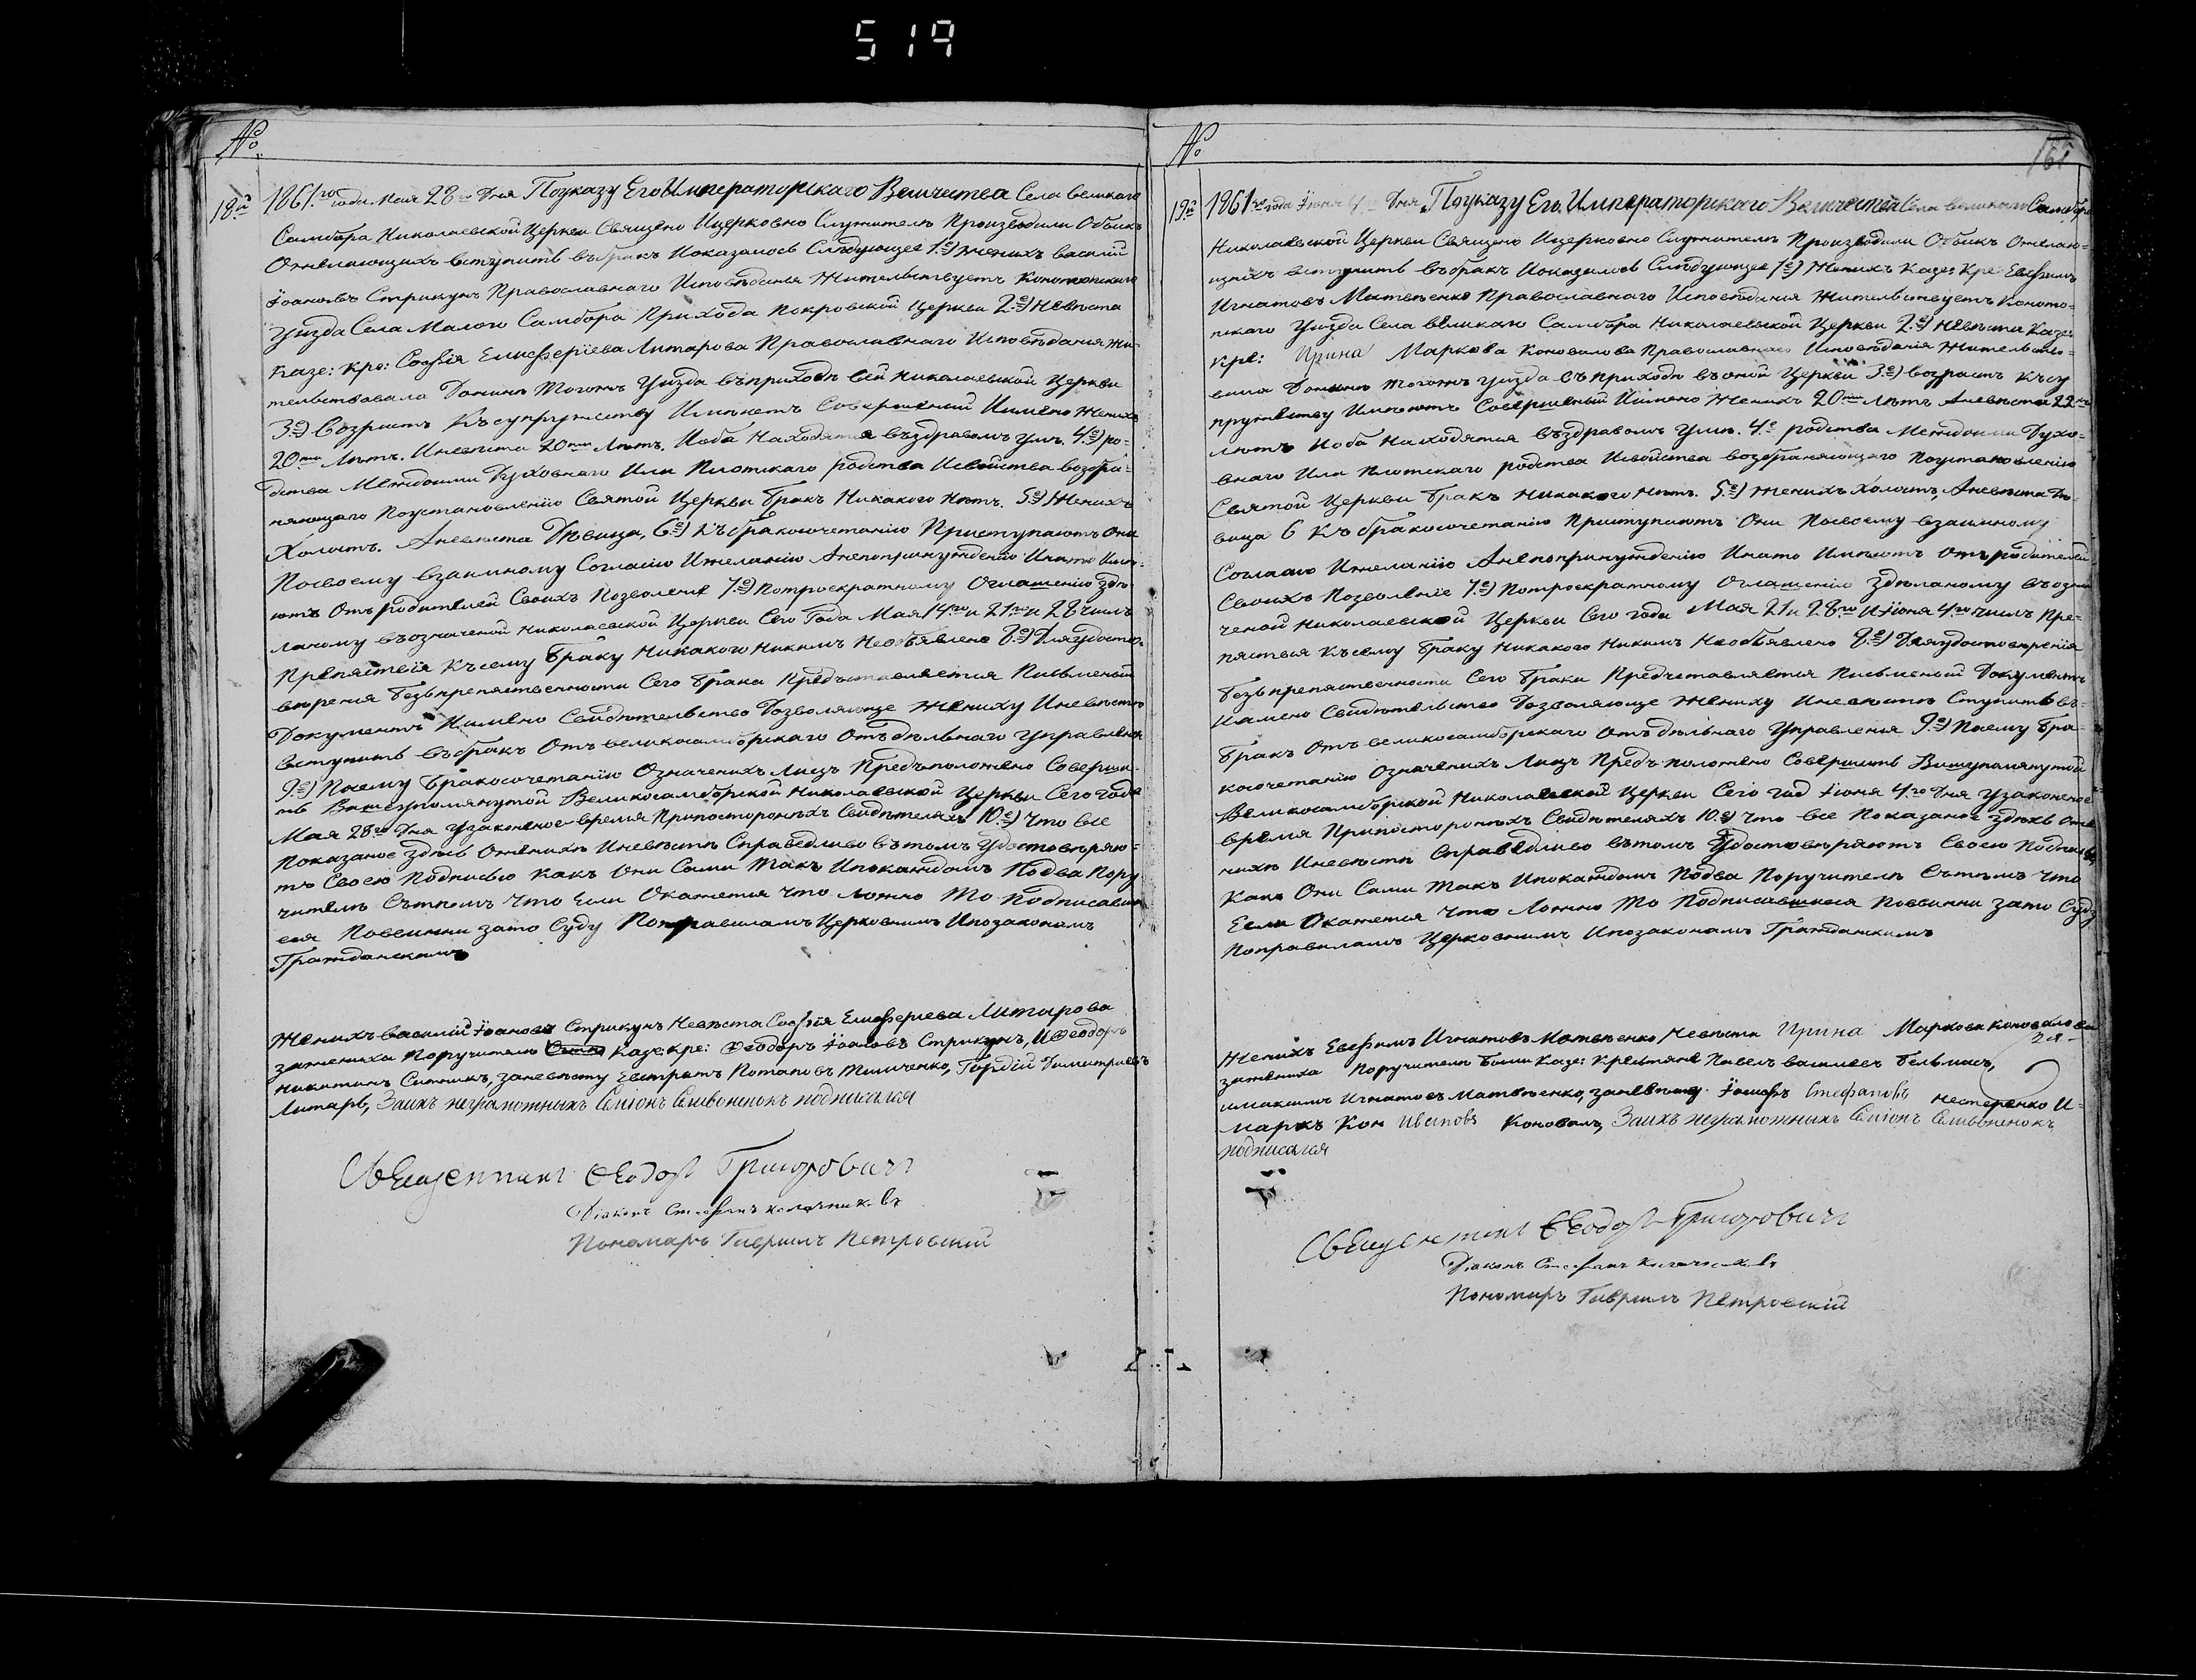 519
№
18й 1861го года Мая 28го Дня По указу Его Императорскаго Величества Села великаго
Самбора Николаевской Церкви Священо Ицерковно Служители Производили Обыскъ
Ожелающихъ вступить вбракъ Иоказалось Слѣдующее 1е) женихъ василій
Іоановъ Стрикунъ Православнаго Исповѣданія Жительствуетъ Конотопскаго
Уизда Села Малого Самбора Прихода Покровской Церкви 2е) Невѣста
Казе: Кре: Софія Елисеферіева Литарова Православнаго Исповѣданія Жи-
тельствовала Донынѣ Тогожъ Уизда въприходѣ сей Николаевской Церкви
3е) Возрастъ Къ супружеству Имѣютъ Совершенный Имено Женихъ
20ти Лѣтъ. Иневѣста 20ти Лѣтъ. Иоба Находятся въздравомъ умѣ. 4е) ро-
дства Междоими Духовнаго Или Плотскаго родства Исвойства возбра-
няющаго Поустановленію Святой Церкви бракъ Никакого Нѣтъ. 5е) Женихъ
Холостъ. Аневѣста Дѣвица, 6е) Къбракосочетанію Приступаютъ Они
Посвоему взаимному Согласію Ижеланію Анепопринужденію Инато Имѣ-
ютъ Отъ родителей Своихъ Позволеніе 7е) Потроекратному Оглашенію здѣ-
ланому въозначеной Николаевской Церкви Сего Года Мая 14го и 21го и 28 числъ
Препятствія Къ сему браку Никакого Никимъ Необъявлено 8е) Дляудосто-
вѣренія безъпрепятственности Сего брака Предъставляется Письменый
Документъ Имено Свидѣтельство Дозволяюще Жениху Иневѣстѣ
Вступить въбракъ Отъ великосамборскаго Отъдѣльнаго Управленія
9е) Поему бракосочетанію Означенихъ Лицъ Предъположено Соверши-
ть Вышеупомянутой Великосамборской Николаевской Церкви Сего года
Мая 28го Дня Узаконеное время Припостороннихъ Свидѣтеляхъ 10е) Что все
Показаное здѣсь Оженихѣ Иневѣстѣ Справедливо вътомъ Удостовѣряю-
тъ Своею Подписью Какъ Они Сами Такъ Ипокаждомъ Подва Пору
чителѣ Сътѣмъ Что Если Окажется Что Ложно То Подписавши
еся Повинни зато Суду Поправиламъ Церковнымъ Ипозаконамъ
Гражданскимъ
Женихъ василій Іоановъ Стрикунъ Невѣста Софія Елисеферіева Литарова
зажениха Поручители Казе: Кре: Феодоръ Іоановъ Стрикунъ, И Феодоръ
Никитинъ Ситникъ, заневѣсту Евстратъ Потаповъ Тимченко, Гордій Димитріевъ
Литарь, Заихъ неграмотныхъ Семіонъ Семвоненокъ подписался
Священникъ Феодоръ Григоровичъ
Діаконъ Стефанъ
Пономарь Гавріилъ Петровскій
№ 161
19й 1861го года Іюня 4го Дня По указу Его Императорскаго Величества Села великаго Самбора
Николаевской Церкви Священо Ицерковно Служители Производили Обыскъ Ожелаю-
щихъ вступить въбракъ Иоказалось Слѣдующее 1е) Женихъ Казе: Кре: Евфимъ
Игнатовъ Матвѣенко Православнаго Исповѣданія Жительствуетъ Коното-
пскаго Уизда Села великаго Самбора Николаевской Церкви 2е) Невѣста Казе:
Кре: Ирина Маркова Коновалова Православнаго Исповѣданія Жительство-
вала Донынѣ Тогожъ Уизда въприходѣ въоной Церкви 3е) возрастъ Къ су
пружеству Имѣютъ Совершенный Иимено Женихъ 20ти Лѣтъ Аневѣста 22хъ
лѣтъ Иоба Находятся въздравомъ Умѣ. 4е родства Междоими Духо-
внаго Или Плотскаго родства Исвойства возбраняющаго Поустановленію
Святой Церкви бракъ Никакого Нѣтъ. 5е) Женихъ Холостъ, Аневѣста Дѣ-
вица 6 Къ бракосочетанію Приступаютъ Они Посвоему взаимному
Согласію Ижеланію Анепопринужденію Инато Имѣютъ Отъ родителей
Своихъ Позволеніе 7е) Потроекратному Оглашенію Здѣланому въозна
ченой Николаевской Церкви Сего года Мая 21 и 28го ИІюня 4го числъ Пре-
пятствія Къ сему браку Никакого Никимъ Необъявлено 8е) Дляудостовѣренія
безъпрепятственности Сего брака Представляется Письменый Документъ
Иимено Свидѣтельство Дозволяюще Жениху Иневѣстѣ Ступить въ
бракъ Отъ великосамборскаго Отъдѣльнаго Управленія 9е) Поему бра-
косочетанію Означенихъ Лицъ Предъположено Совершить Вишупомянутой
Великосамборской Николаевской Церкви Сего год Іюня 4го Дня Узаконеное
время Припостороннихъ Свидѣтеляхъ 10е) Что все Показаное здѣсь Оже
нихѣ Иневѣстѣ Справедливо вътомъ Удостовѣряютъ Своею Подписью,
Какъ Они Сами Такъ Ипокаждомъ Подва Поручителѣ Сътѣмъ Что
Если Окажется Что Ложно То Подписавшиеся Повинни зато Суду
Поправиламъ Церковнимъ Ипозаконамъ Гражданскимъ
Женихъ Евфимъ Игнатовъ Матвѣенко Невѣста Ирина Маркова Коновалова
зажениха Поручители были Казе: Крестьяне Павелъ васильевъ бельмасъ,
имаксимъ Игнатовъ Матвѣенко, заневѣсту Іосифъ Стефановъ Нестеренко И-
Маркъ Кон Ивановъ Коновалъ, Заихъ неграмотныхъ Семіонъ Семвоненокъ
подписался
Священникъ Феодоръ Григоровичъ
Діаконъ Стефанъ
Пономарь Гавріилъ Петровскій